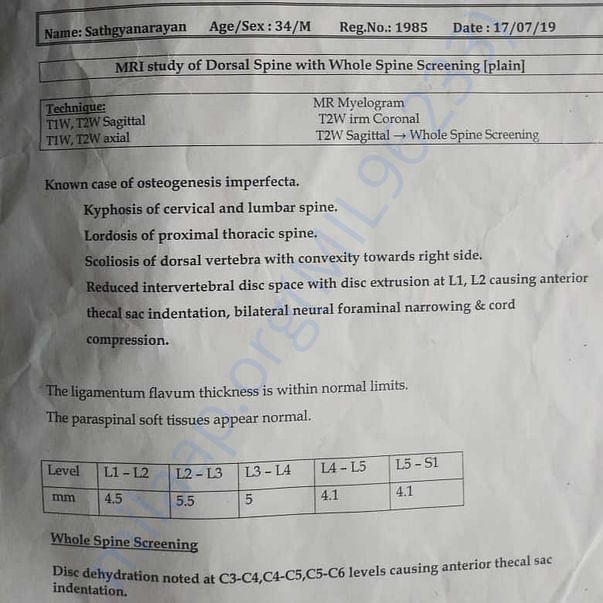 Name: Sathgyanarayan Age/Sex : 34/M Reg.No.: 1985 Date : 17/07/19
MRI study of Dorsal Spine with Whole Spine Screening [plain]
Technique: MR Myelogram
T1W, T2W Sagittal T2W irm Coronal
T1W, T2W axial T2W Sagittal → Whole Spine Screening
Known case of osteogenesis imperfecta.
Kyphosis of cervical and lumbar spine.
Lordosis of proximal thoracic spine.
Scoliosis of dorsal vertebra with convexity towards right side.
Reduced intervertebral disc space with disc extrusion at L1, L2 causing anterior
thecal sac indentation, bilateral neural foraminal narrowing & cord
compression.
The ligamentum flavum thickness is within normal limits.
The paraspinal soft tissues appear normal.
Level L1 – L2 L2 – L3 L3 – L4 L4 – L5 L5 – S1
mm 4.5 5.5 5 4.1 4.1
Whole Spine Screening
Disc dehydration noted at C3-C4,C4-C5,C5-C6 levels causing anterior thecal sac
indentation.